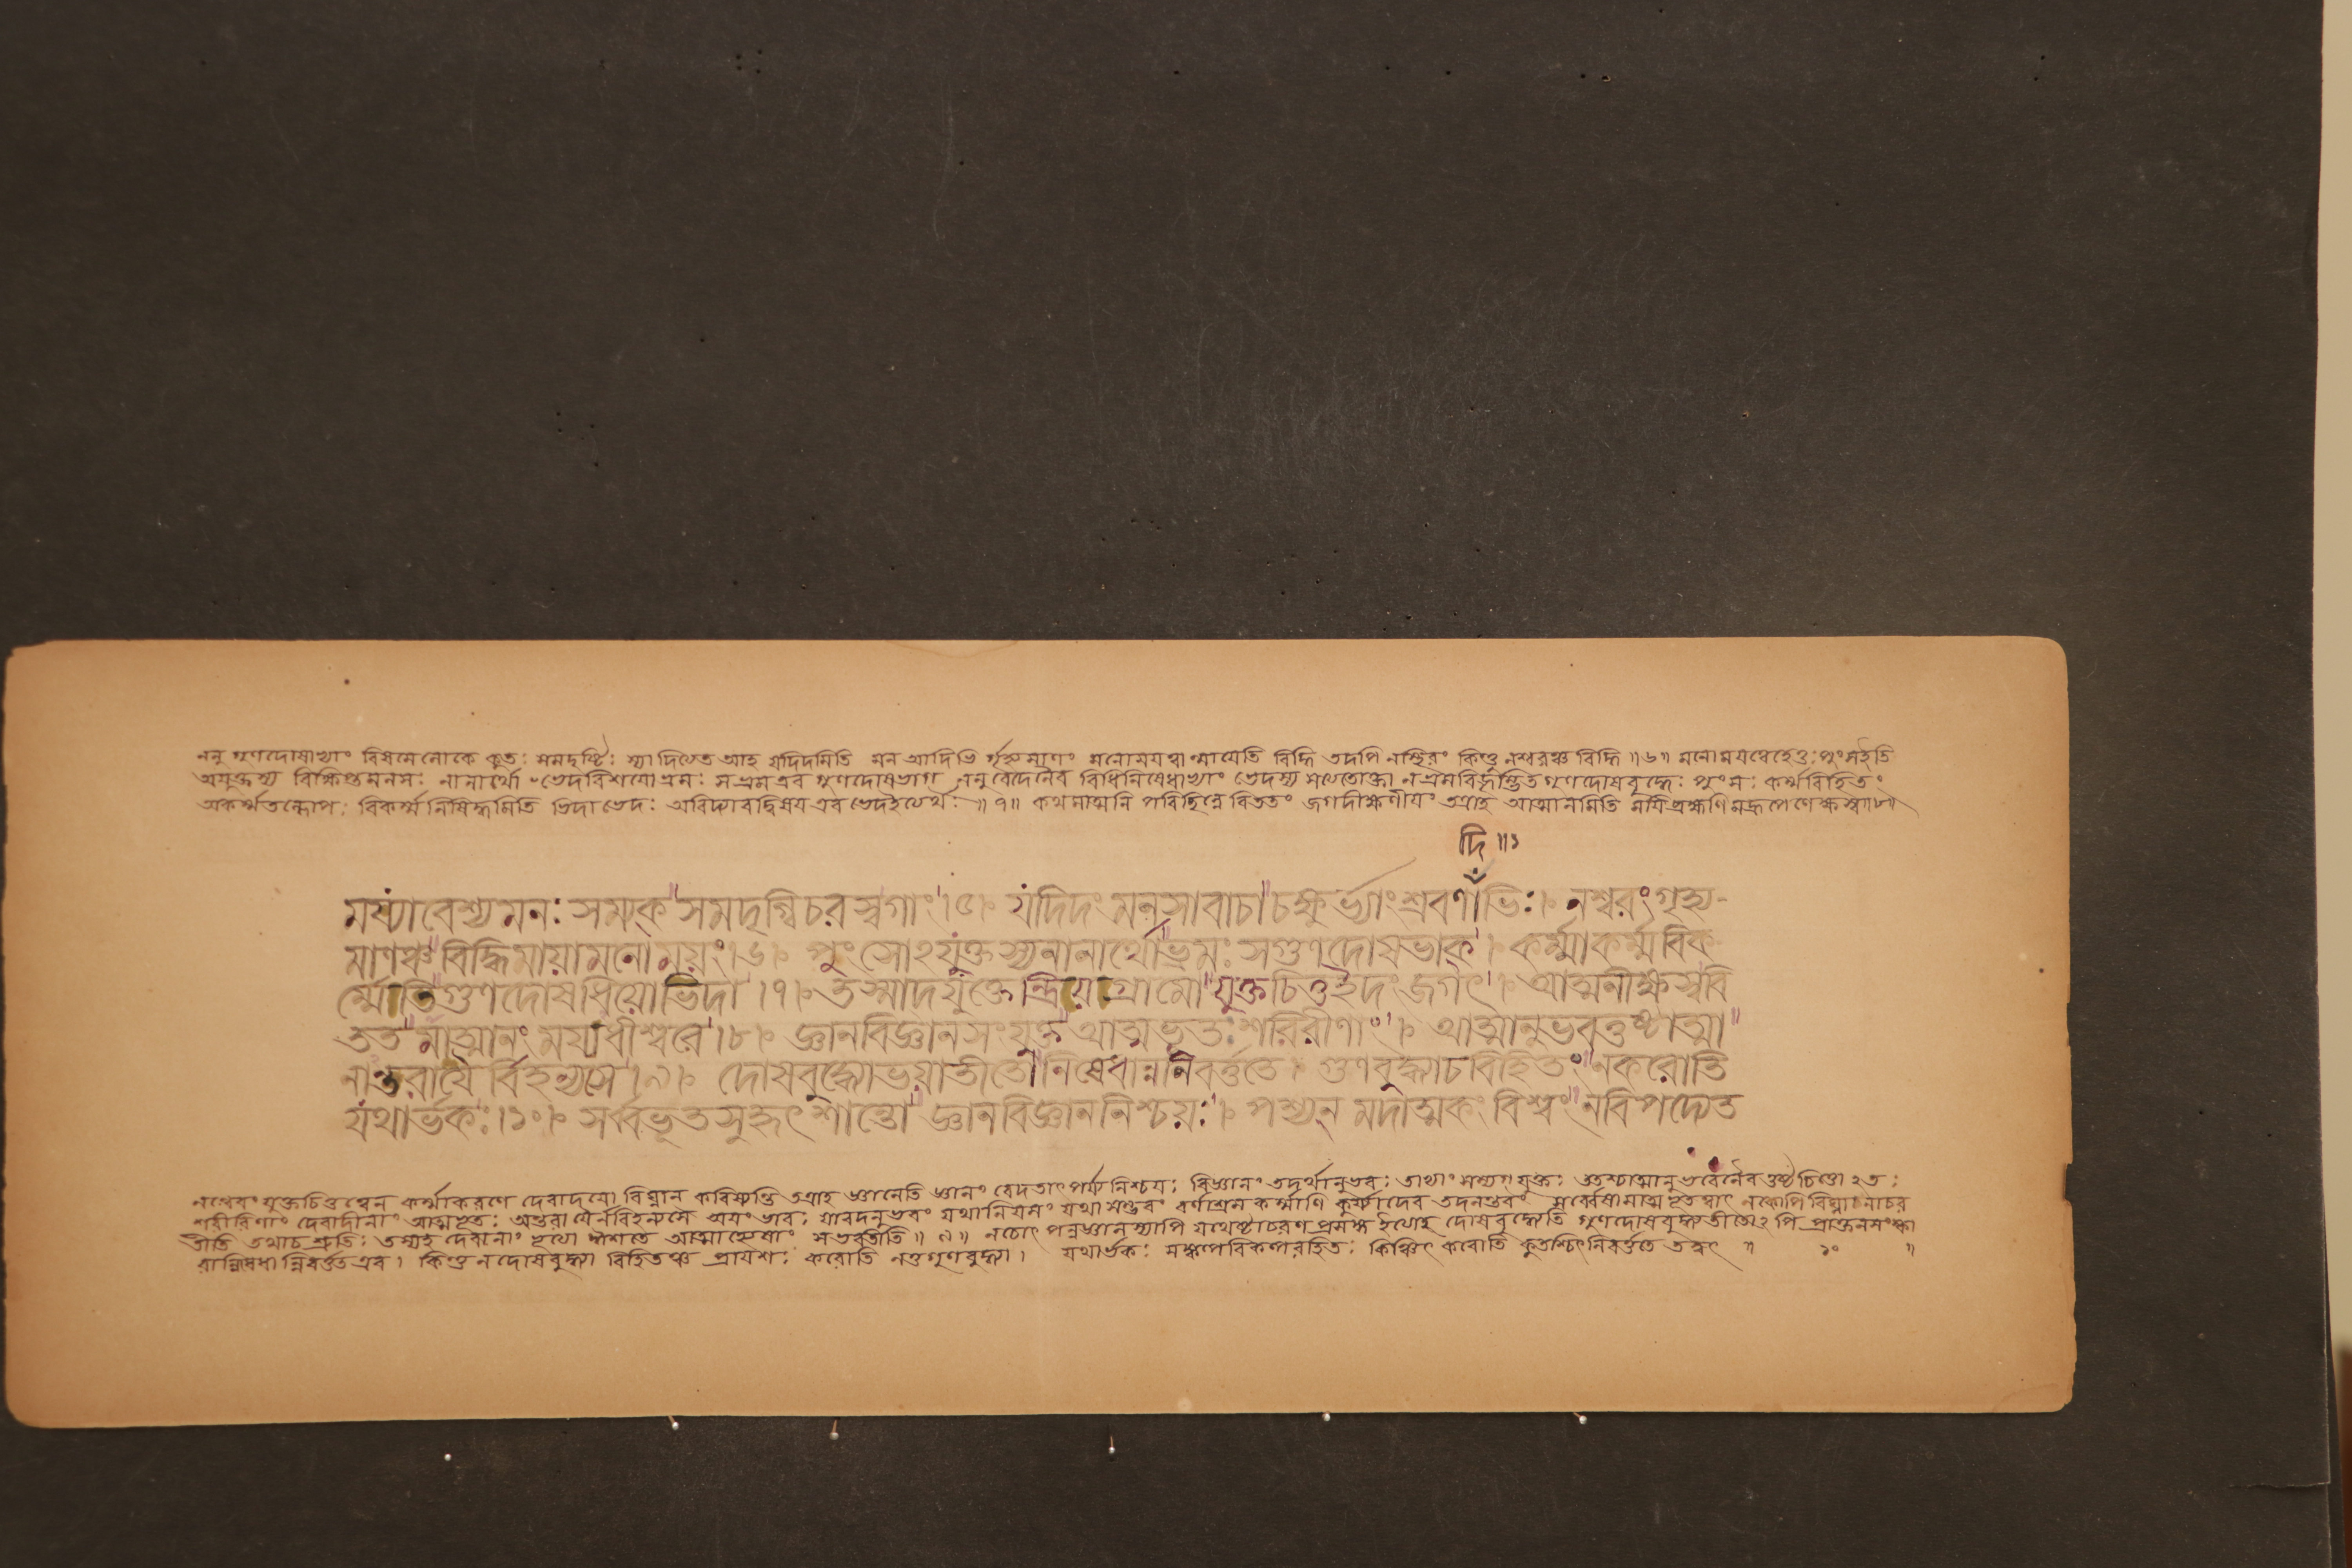 ননু গুণদোষাভ্যাং বিষমে লোকে কুতঃ সমদৃষ্টিঃ স্যাদিত্যত আহ যদিদমিতি মন আদিভি র্গৃহ্যমাণং মনোময়ত্বান্মায়েতি বিদ্ধি তদপি নস্থিরং কিন্তু নশ্বরঞ্চ বিদ্ধি ॥৬॥ মনোময়ত্বেহেতুঃ পুংসইতি
অযুক্তস্য বিক্ষিপ্তমনসঃ নানার্থো ভেদবিশয়ো ভ্রমঃ সভ্রমএব গুণদোষভাগ্ ননু বেদেনৈব বিধিনিষেধাভ্যাং ভেদস্য সত্যতোক্তা গুণদোষবুদ্ধেঃ পুংসঃ কর্ম্মবিহিতং
অকর্ম্মতল্লোপঃ বিকর্ম্ম নিষিদ্ধমিতি ভিদা ভেদঃ অবিদ্যাবদ্বিষয় এব ভেদইত্যর্থঃ ॥৭॥ কথমাত্মনি পরিচ্ছিন্নে বিততং জগদীক্ষণীয়ং তত্রাহ আত্মানমিতি ময়িব্রহ্মণি মদ্রূপেণেক্ষস্ব॥৮॥
দি ॥১
ময্যাবেশ্য মনঃ সম্যক্ সমদৃগ্বিচরস্বগাং ।৫। যদিদং মনসাবাচা চক্ষুর্ভ্যাং শ্রবণাভিঃ । নশ্বরং গৃহ্য-
মাণঞ্চ বিদ্ধিমায়ামনোময়ং ।৬। পুংসোঽযুক্তস্যনানার্থোভ্রমঃ সগুণদোষভাক্ । কর্ম্মাকর্ম্মবিক
র্ম্মেতিগুণদোষধিয়োভিদা ।৭। তস্মাদযুক্তেন্দ্রিয়গ্রামো যুক্তচিত্তইদং জগৎ । আত্মনীক্ষস্ববি
তত মাত্মানং ময্যধীশ্বরে ।৮। জ্ঞানবিজ্ঞানসংযুক্ত আত্মভূতঃ শরিরীণাং । আত্মানুভবতুষ্টাত্মা
নান্তরায়ৈ র্বিহন্যসে ।৯। দোষবুদ্ধ্যোভয়াতীতোনিষেধান্ননিবর্ত্ততে । গুণবুদ্ধ্যাচবিহিতং নকরোতি
যথার্ভকঃ ।১০। সর্ব্বভূতসুহৃৎ শান্তো জ্ঞানবিজ্ঞাননিশ্চয়ঃ । পশ্যন্ মদাত্মকং বিশ্বং নবিপদ্যেত
নন্বেবং যুক্তচিত্তত্বেন কর্ম্মাকরণে দেবাদয়ো বিঘ্নান্ করিষ্যন্তি তত্রাহ জ্ঞানেতি জ্ঞানং বেদতাৎপর্য্যনিশ্চয়ঃ বিজ্ঞানং তদর্থানুভবঃ তাভ্যাং সম্যগ্যুক্তঃ ততশ্চাত্মানুভবেনৈব তুষ্টচিত্তো ২তঃ
শরীরিণাং দেবাদীনাং আত্মভূতঃ অন্তরায়ৈর্নবিহন্যসে অয়ং ভাবঃ যাবদনুভবং যথানিয়মং যথা সম্ভবং বর্ণাশ্রমকর্ম্মাণি কুর্য্যাদেব তদনন্তরং সর্ব্বেষামাত্মভূতত্বাৎ নকোপি বিঘ্নমাচর
তীতি তথাচ শ্রুতিঃ তস্যহ দেবানাং আত্মাহ্যেষাং সভবতীতি ॥৯॥ নচোৎপন্নজ্ঞানস্যাপি যথেষ্টাচরণপ্রসঙ্গ ইত্যাহ দোষবুদ্ধ্যেতি গুণদোষবুদ্ধ্যতীতো২পি প্রাক্তনসংস্কা
রান্নিষেধান্নিবর্ত্তত এব । কিন্তু ন দোষবুদ্ধ্যা বিহিতঞ্চ প্রায়শঃ করোতি নতুগুণবুদ্ধ্যা । যথার্ভকঃ সঙ্কল্পবিকল্পরহিতঃ কিঞ্চিৎ করোতি কুতশ্চিৎ নিবর্ত্ততে তদ্বৎ ॥ ১০ ॥